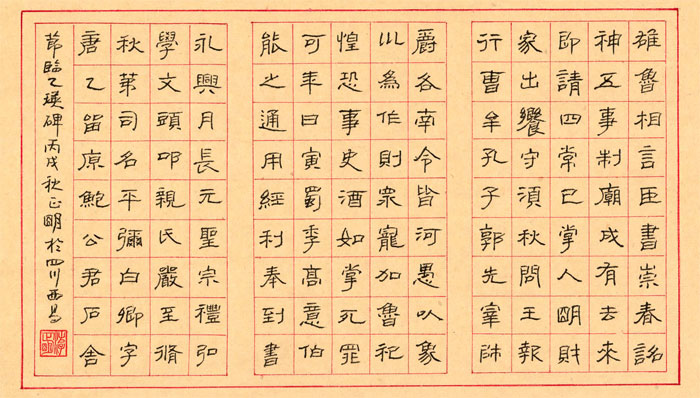 雄魯相言臣書崇春詔
神五事制廟成有去來
即請四常已掌人明財
家出饗守須秋問王報
行曹牟孔子郭先宰師
爵各南令皆河愚以象
以為作則眾寵加魯祀
惶恐事史酒如掌死罪
可年曰寅蜀季高意伯
能之通用經利奉到書
永興月長元聖宗禮弘
學文頭叩親氏嚴至脩
秋第司名平彌白卿字
唐乙留原鮑公君石舍
節臨乙瑛碑丙戌秋正明於四川西昌